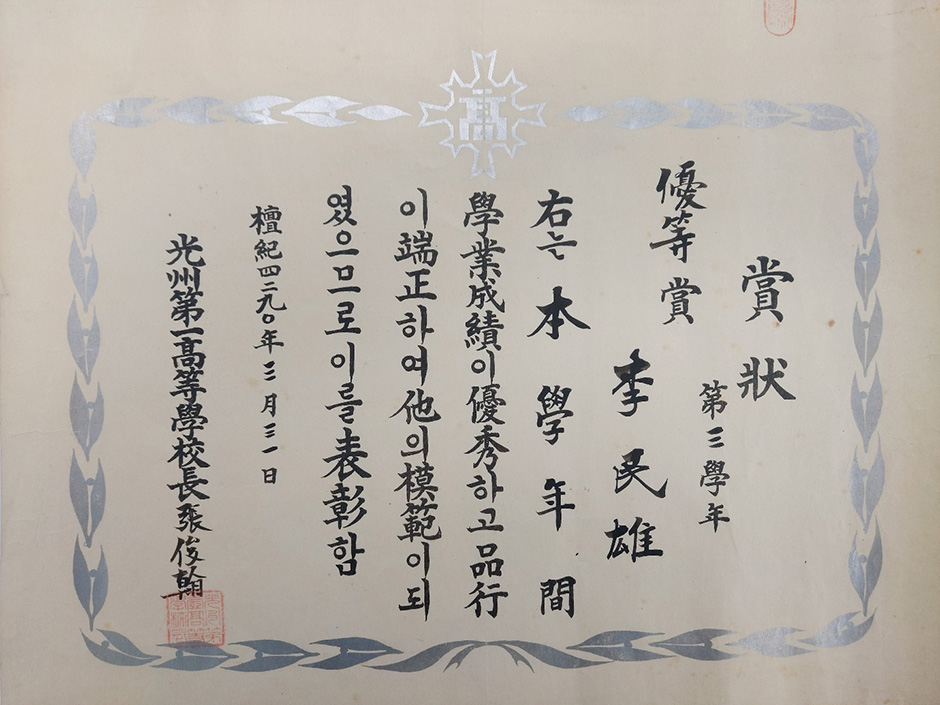 高
賞狀
第三學年
優等賞
李民雄
右는 本學年間
學業成績이優秀하고品行
이端正하여他의模範이되
였으므로이를表彰함
檀紀四二九〇年三月三一日
光州第一高等學校長張俊翰